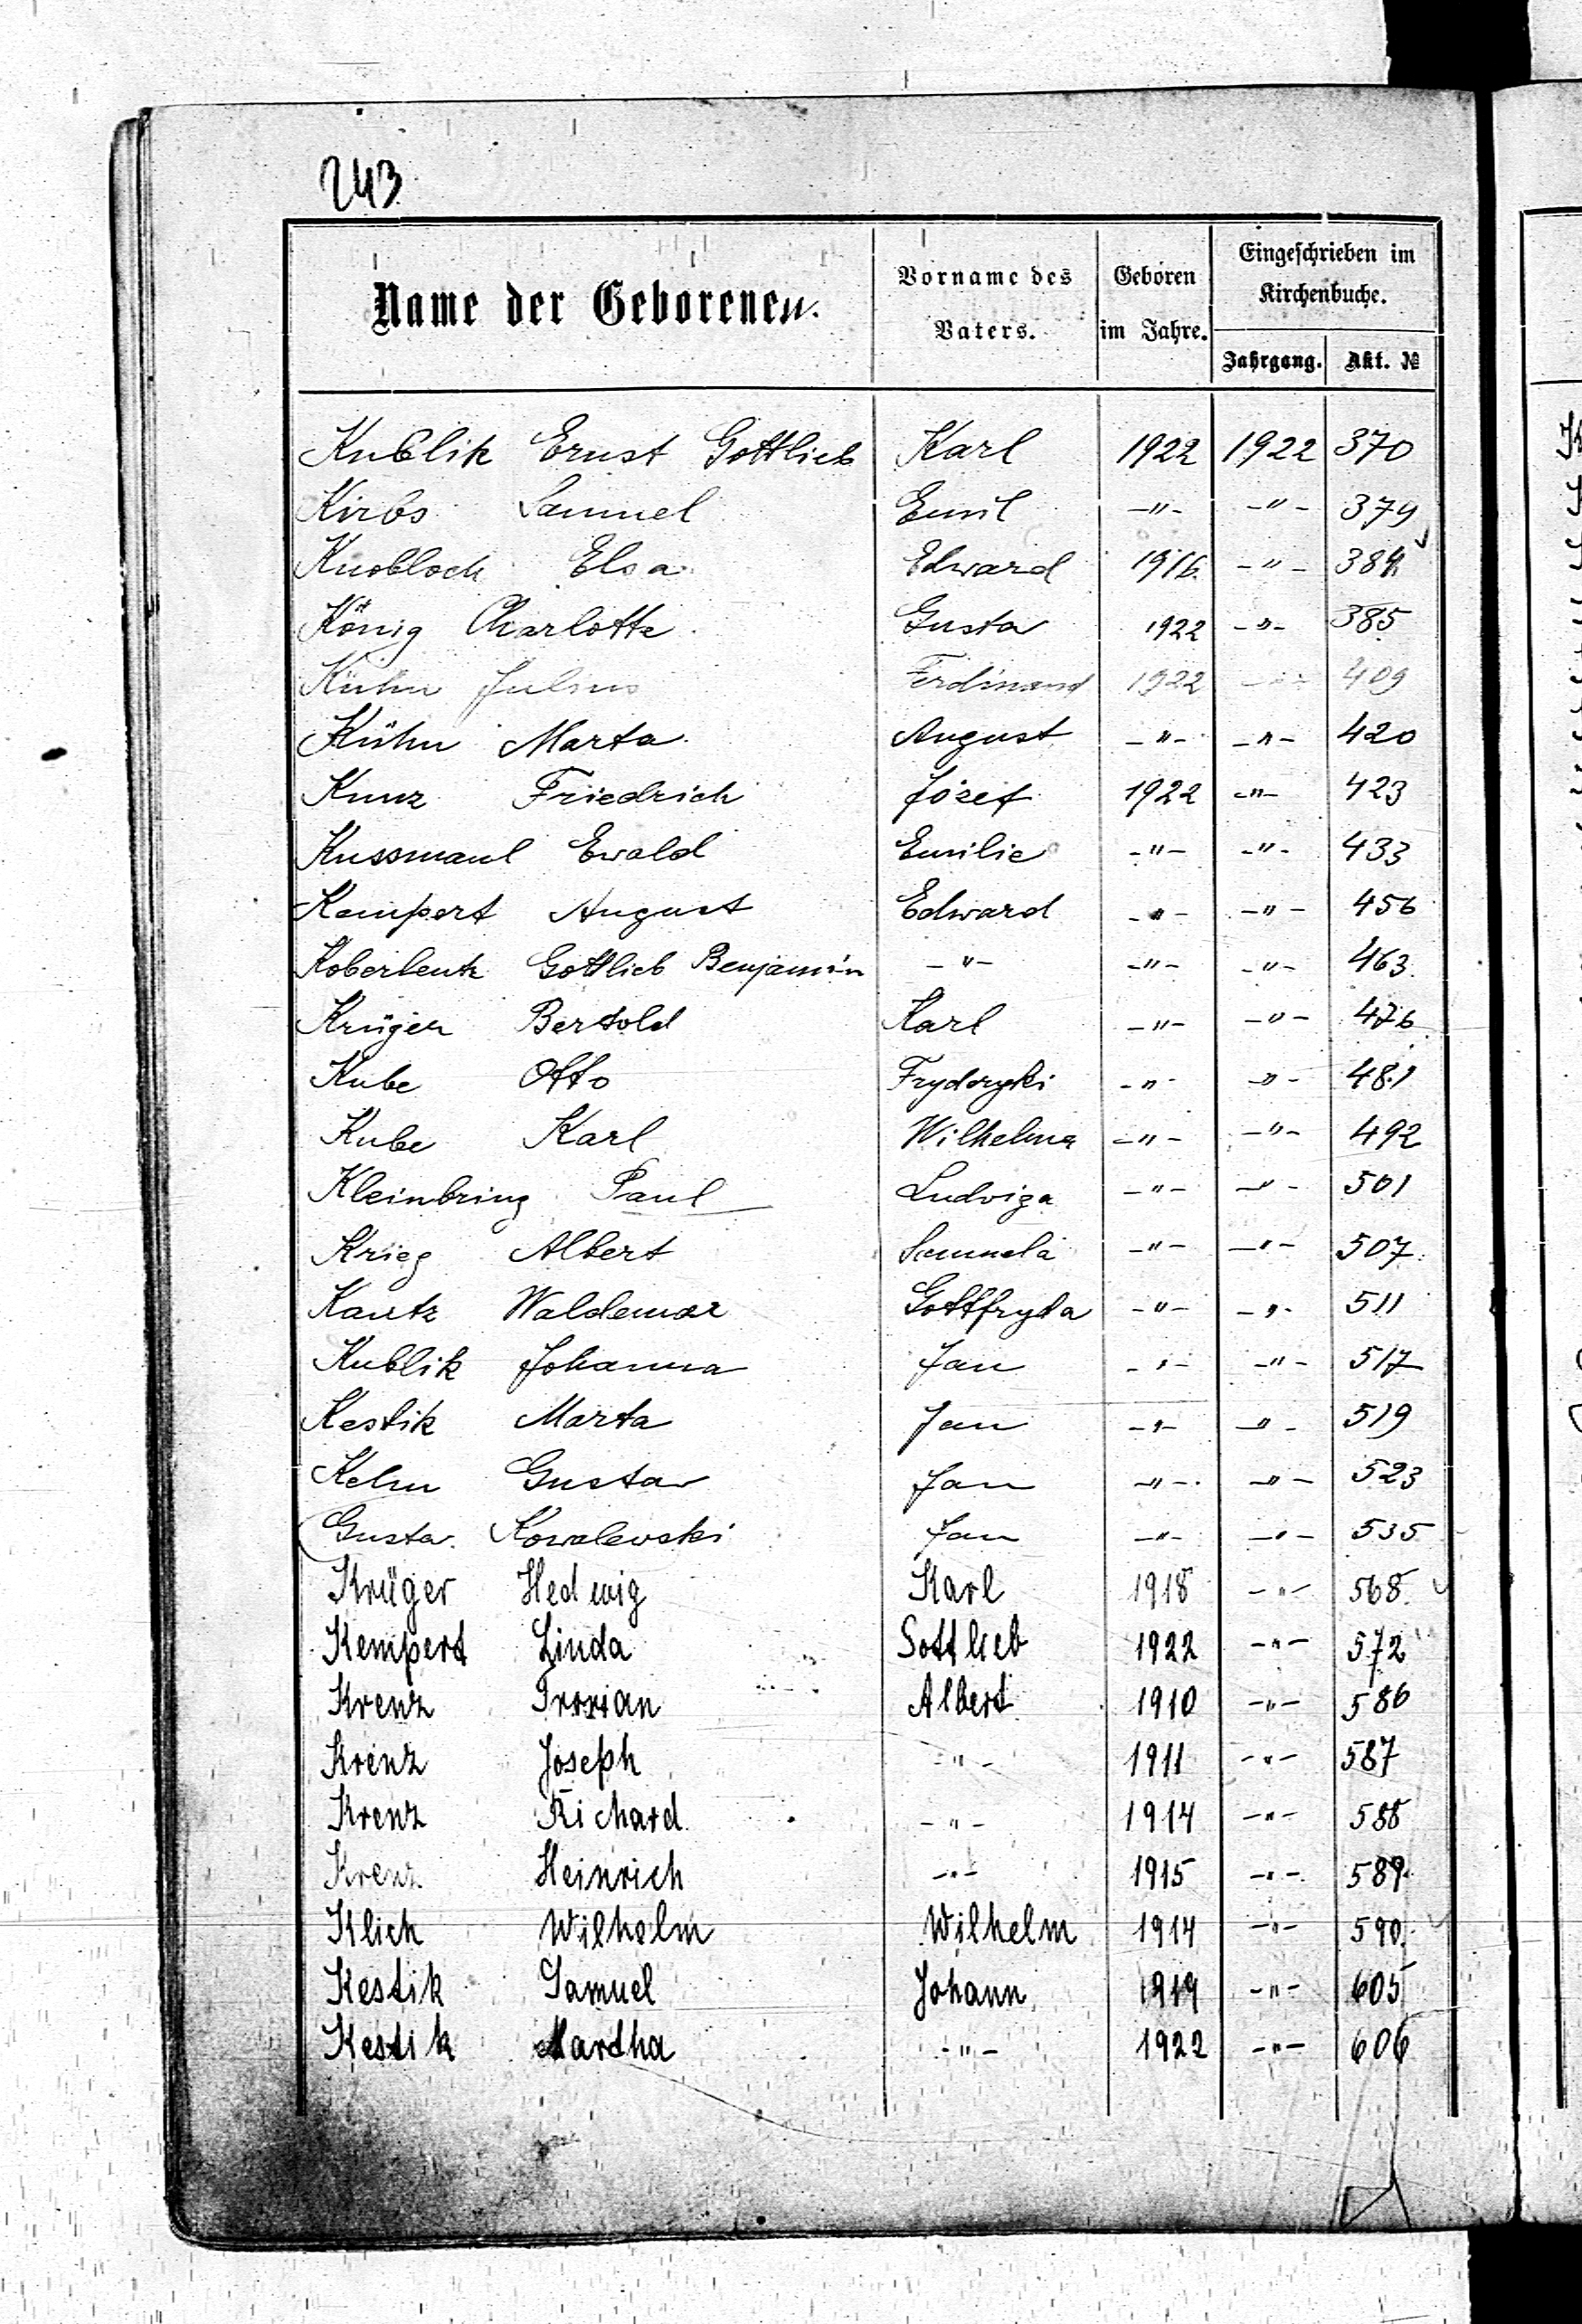 243
Name der Geborenen.
Vorname des Vaters.
Geboren im Jahre.
Eingeschrieben im Kirchenbuche.
Jahrgang. Akt. №
Kublik Ernst Gottlieb Karl 1922 1922 370
Kirbs Samuel Emil -"- -"- 379
Knobloch Elsa Edward 1916. -"-
König Charlotte Gusta 1922 -"- 385
Kühn Julius Ferdinand 1922 -"- 409
Kühn Marta August -"- -"- 420
Kunz Friedrich Józef 1922 -"- 423
Kussmaul Ewald Emilie -"- -"- 433
Kempert August Edward -"- -"- 456
Koberlenk Gottlieb Benjamin -"- -"- -"- 463
Krüger Bertold Karl -"- -"- 476
Kube Otto Frydryki -"- -"- 481
Kube Karl Wilhelma -"- -"- 492
Kleinbring Paul Ludviga -"- -"- 501
Krieg Albert Samuela -"- -"- 507
Kautz Waldemar Gottfryda -"- -"- 511
Kublik Johanna Jan -"- -"- 517
Kestik Marta Jan -"- -"- 519
Kelm Gustav Jan -"- -"- 523
Gusta. Kowalewski Jan -"- -"- 535
Krüger Hedwig Karl 1918 -"- 568.
Kempert Linda Gottlieb 1922 -"- 572
Krenz Albert 1910 -"- 586
Krenz Joseph -"- 1911 -"- 587
Krenz Richard -"- 1914 -"- 588
Krenz Heinrich -"- 1915 -"- 589.
Klich Wilhelm Wilhelm 1914 -"- 590.
Kestik Samuel Johann 1919 -"- 605
Kestik Martha -"- 1922 -"- 606